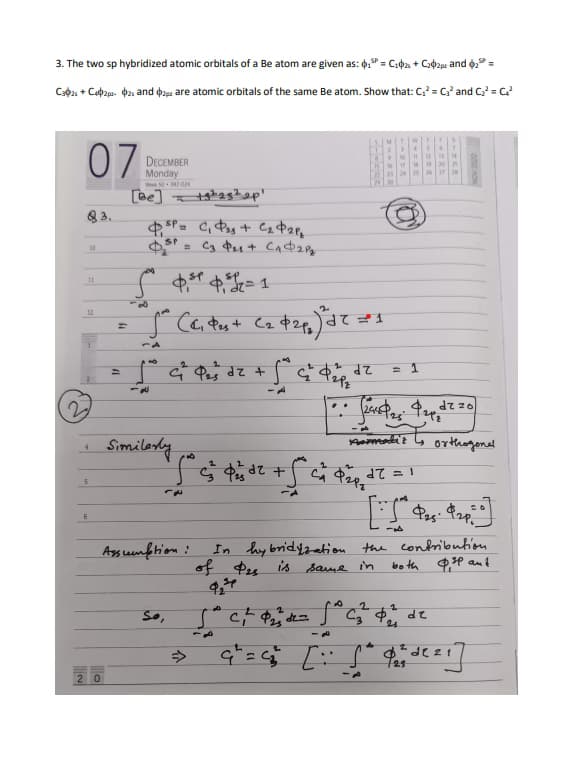 3. The two sp hybridized atomic orbitals of a Be atom are given as: ϕ₁ˢᵖ = C₁ϕ₂ₛ + C₂ϕ₂ₚ𝓏 and ϕ₂ˢᵖ =
C₃ϕ₂ₛ + C₄ϕ₂ₚ𝓏. ϕ₂ₛ and ϕ₂ₚ𝓏 are atomic orbitals of the same Be atom. Show that: C₁² = C₃² and C₂² = C₄²
07 DECEMBER
Monday
[Be] = 1s²2s²2p¹
Q3.
ϕ₁ˢᵖ = C₁ ϕ₂ₛ + C₂ ϕ₂ₚ𝓏
ϕ₂ˢᵖ = C₃ ϕ₂ₛ + C₄ ϕ₂ₚ𝓏
∫ ϕ₁ˢᵖ ϕ₁ˢᵖ dτ = 1
= ∫ (C₁ ϕ₂ₛ + C₂ ϕ₂ₚ𝓏)² dτ = 1
= ∫ C₁² ϕ₂ₛ² dτ + ∫ C₂² ϕ₂ₚ𝓏² dτ = 1
2
[∵ ∫ 2C₁C₂ ϕ₂ₛ. ϕ₂ₚ𝓏 dτ = 0]
↳ orthogonal
Similarly
∫ C₃² ϕ₂ₛ² dτ + ∫ C₄² ϕ₂ₚ𝓏² dτ = 1
[∵ ∫ ϕ₂ₛ. ϕ₂ₚ𝓏 = 0]
Assumption : In hybridization the contribution
of ϕ₂ₛ is same in both ϕ₁ˢᵖ and
ϕ₂ˢᵖ
So, ∫ C₁² ϕ₂ₛ² dτ = ∫ C₃² ϕ₂ₛ² dτ
⇒ C₁² = C₃² [∵ ∫ ϕ₂ₛ² dτ = 1]
20